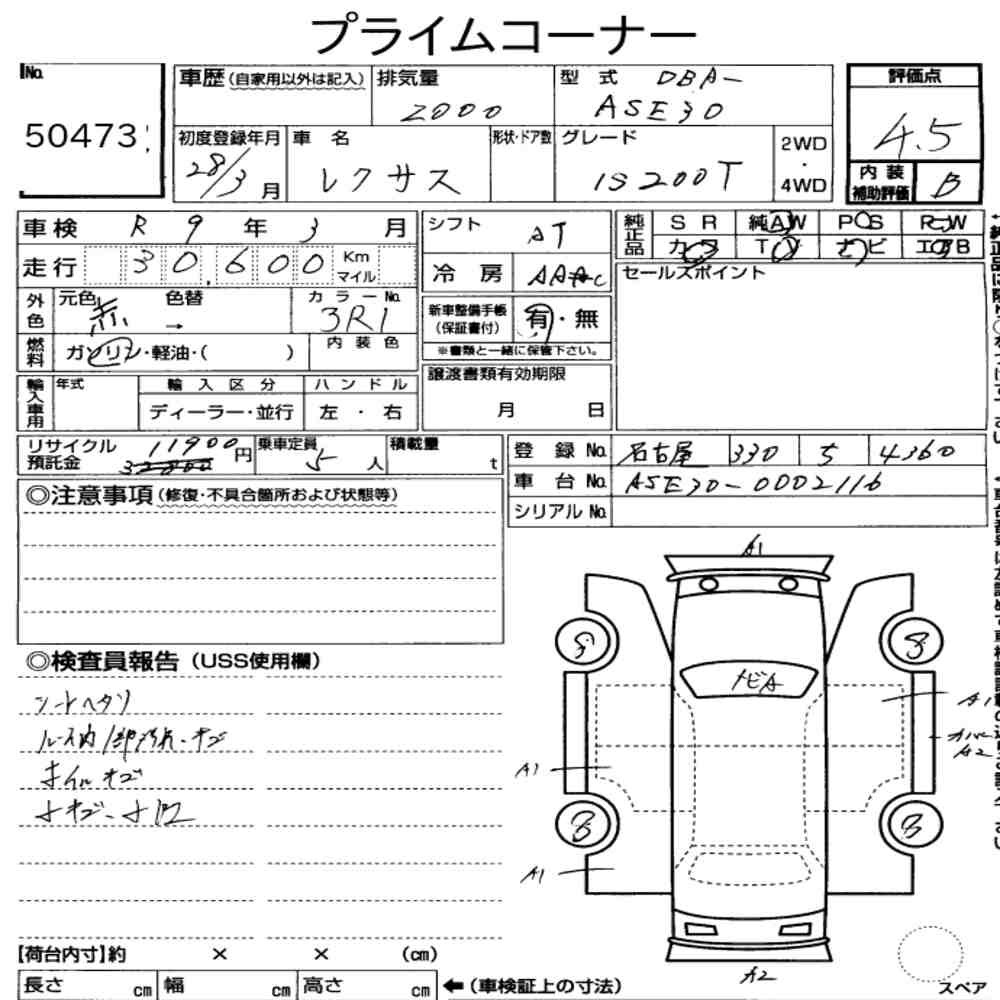 プライムコーナー
No.
50473
車歴(自家用以外は記入) 排気量 2000 型 式 DBA-
ASE30
評価点
4.5
初度登録年月 28/3 月 車 名 レクサス 形状・ドア数 グレード IS200T 2WD・4WD
内装補助評価 B
車検 R 9 年 3 月
シフト AT
純正品 SR 純AW PS PW
カワ TV ナビ エアB
走行 30,600 Km マイル
冷房 AAC
セールスポイント
外色 元色 赤 色替 → カラーNo. 3R1
新車整備手帳(保証書付) 有・無
※書類と一緒に保管下さい。
燃料 ガソリン・軽油・( ) 内装色
譲渡書類有効期限
月 日
輸入車用 年式 輸入区分 ハンドル
ディーラー・並行 左・右
リサイクル預託金 11900 円 乗車定員 5 人 積載量 t
登録No. 名古屋 330 5 4360
車台No. ASE30-0002116
シリアルNo.
◎注意事項(修復・不具合箇所および状態等)
◎検査員報告(USS使用欄)
シートヘタリ
ルーフ内/部汚れ・キズ
ホイルキズ
小キズ・小凹
A1
ナビA
A1
A2
A1
A1
A2
【荷台内寸】約 × × (cm)
長さ cm 幅 cm 高さ cm ←(車検証上の寸法)
スペア